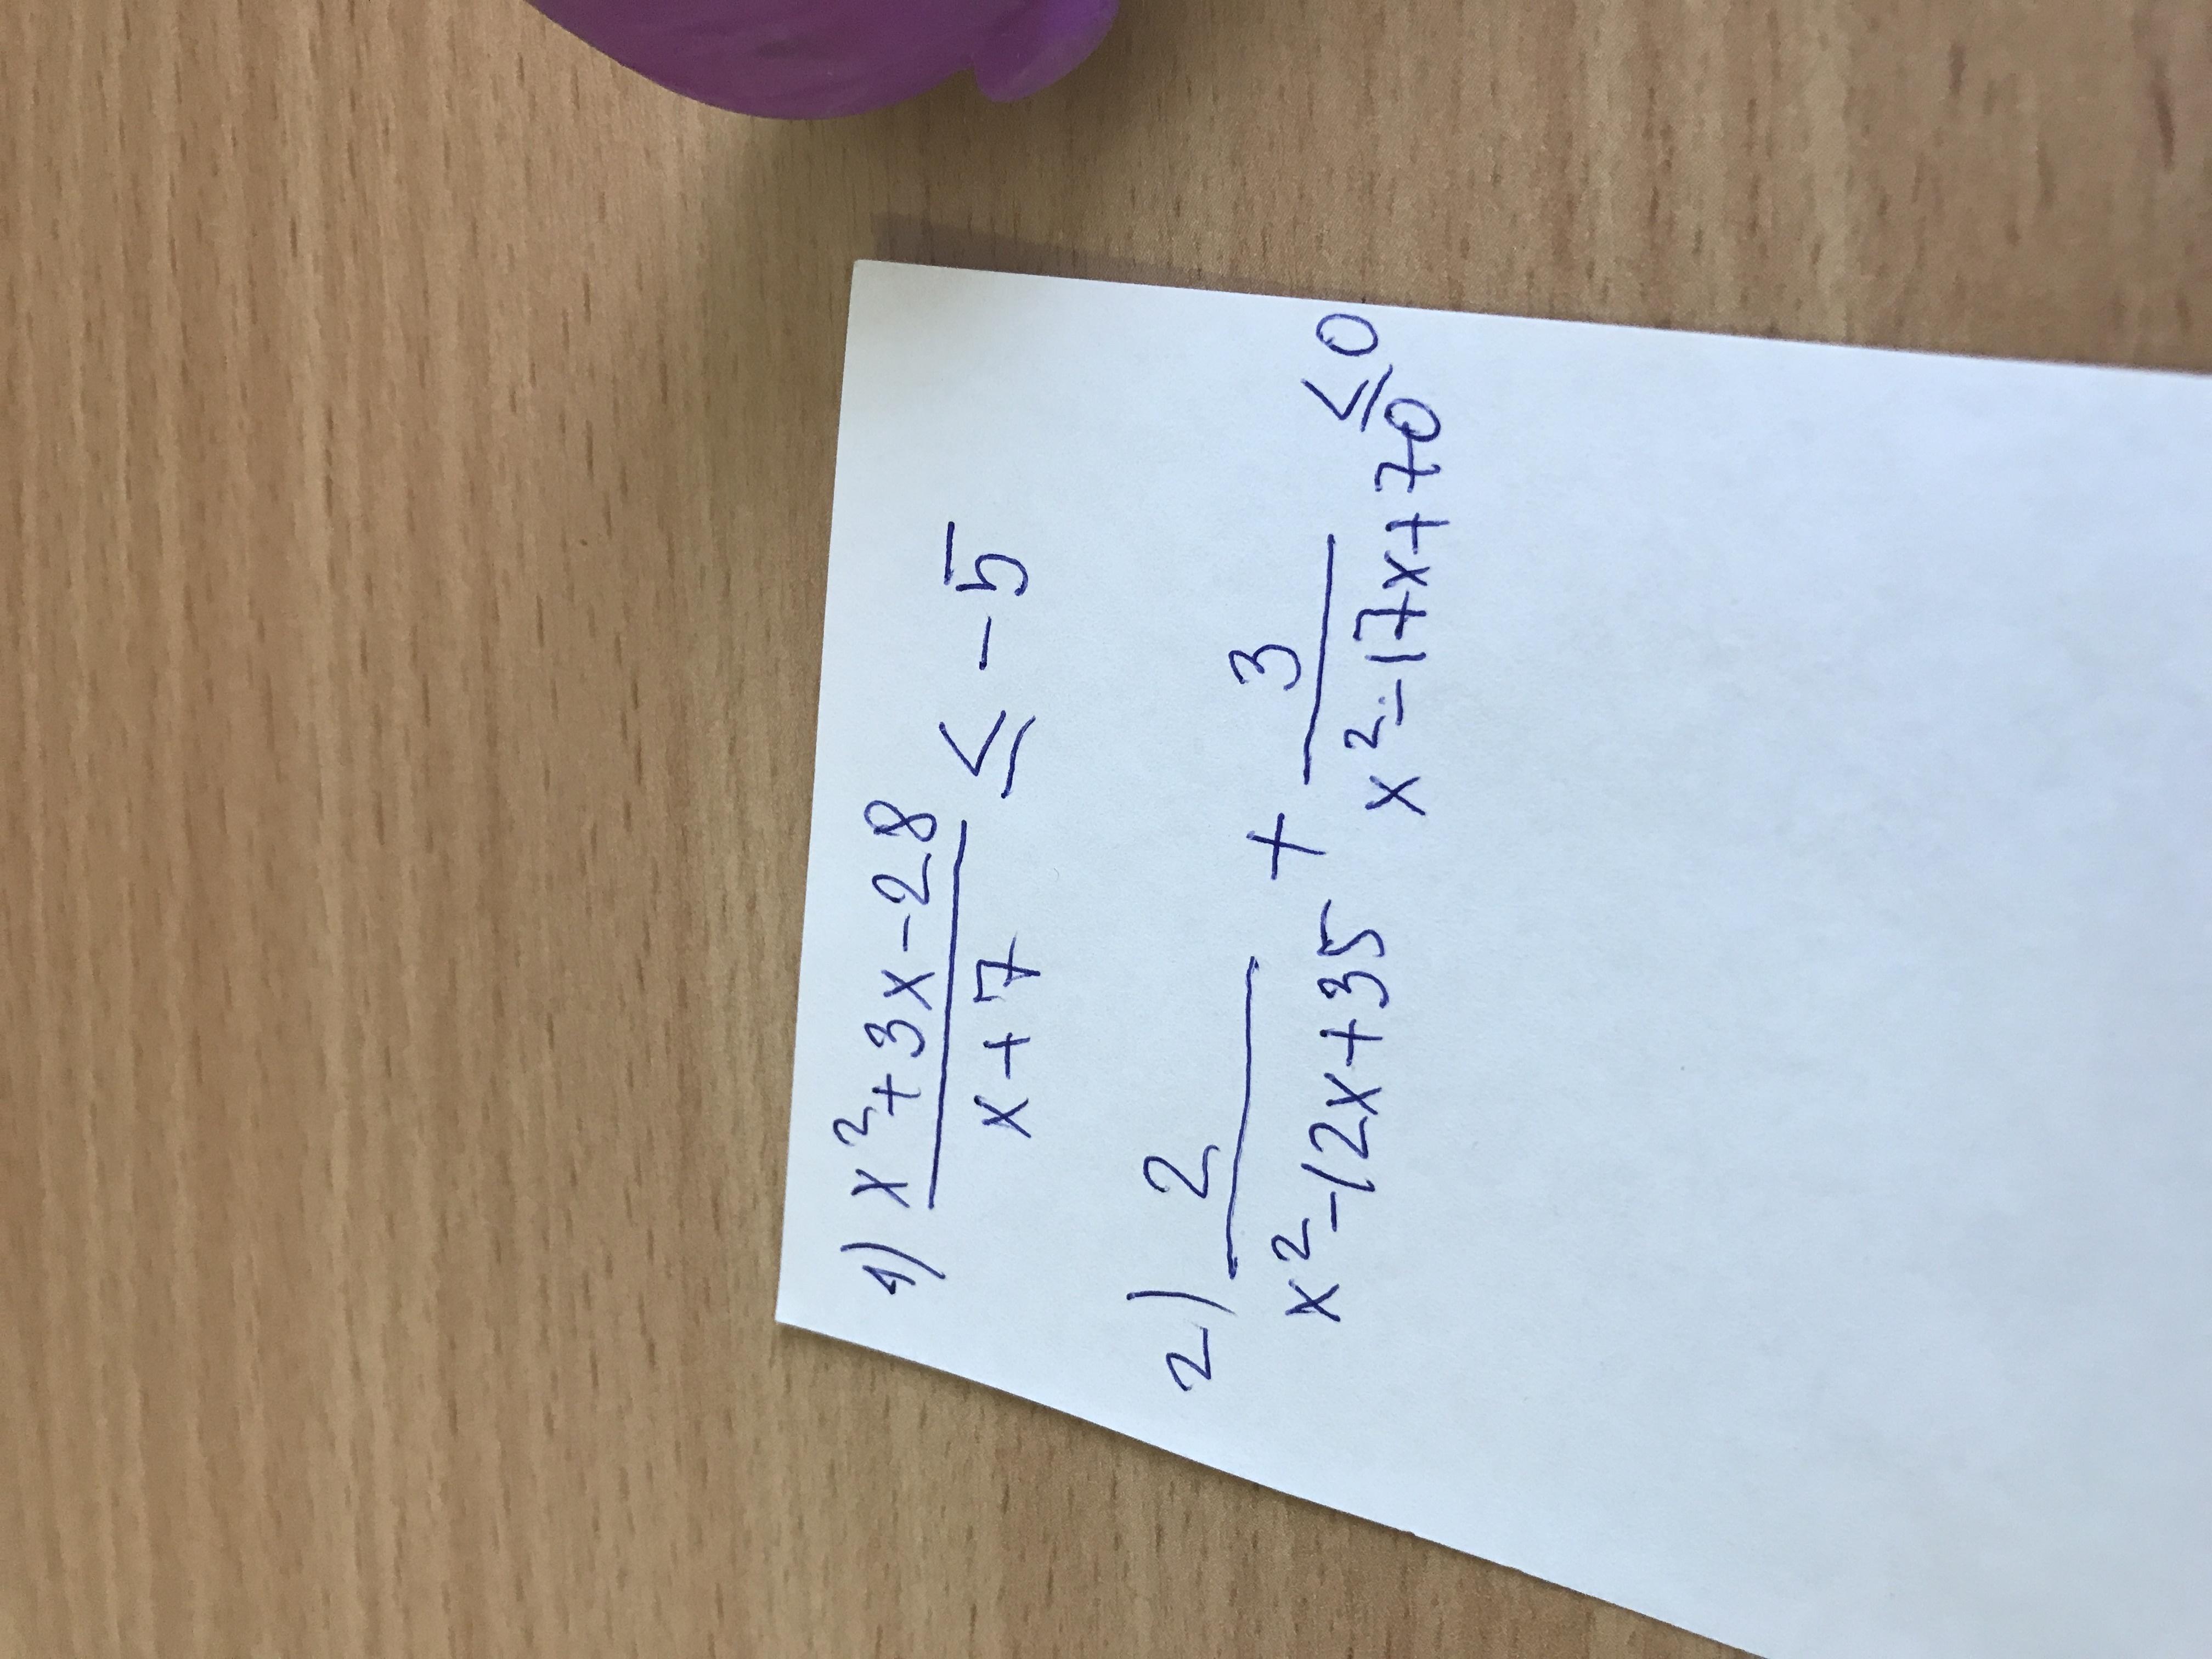 1) x²+3x-28 / x+7 ≤ -5
2) 2 / x²-12x+35 + 3 / x²-17x+70 ≤ 0